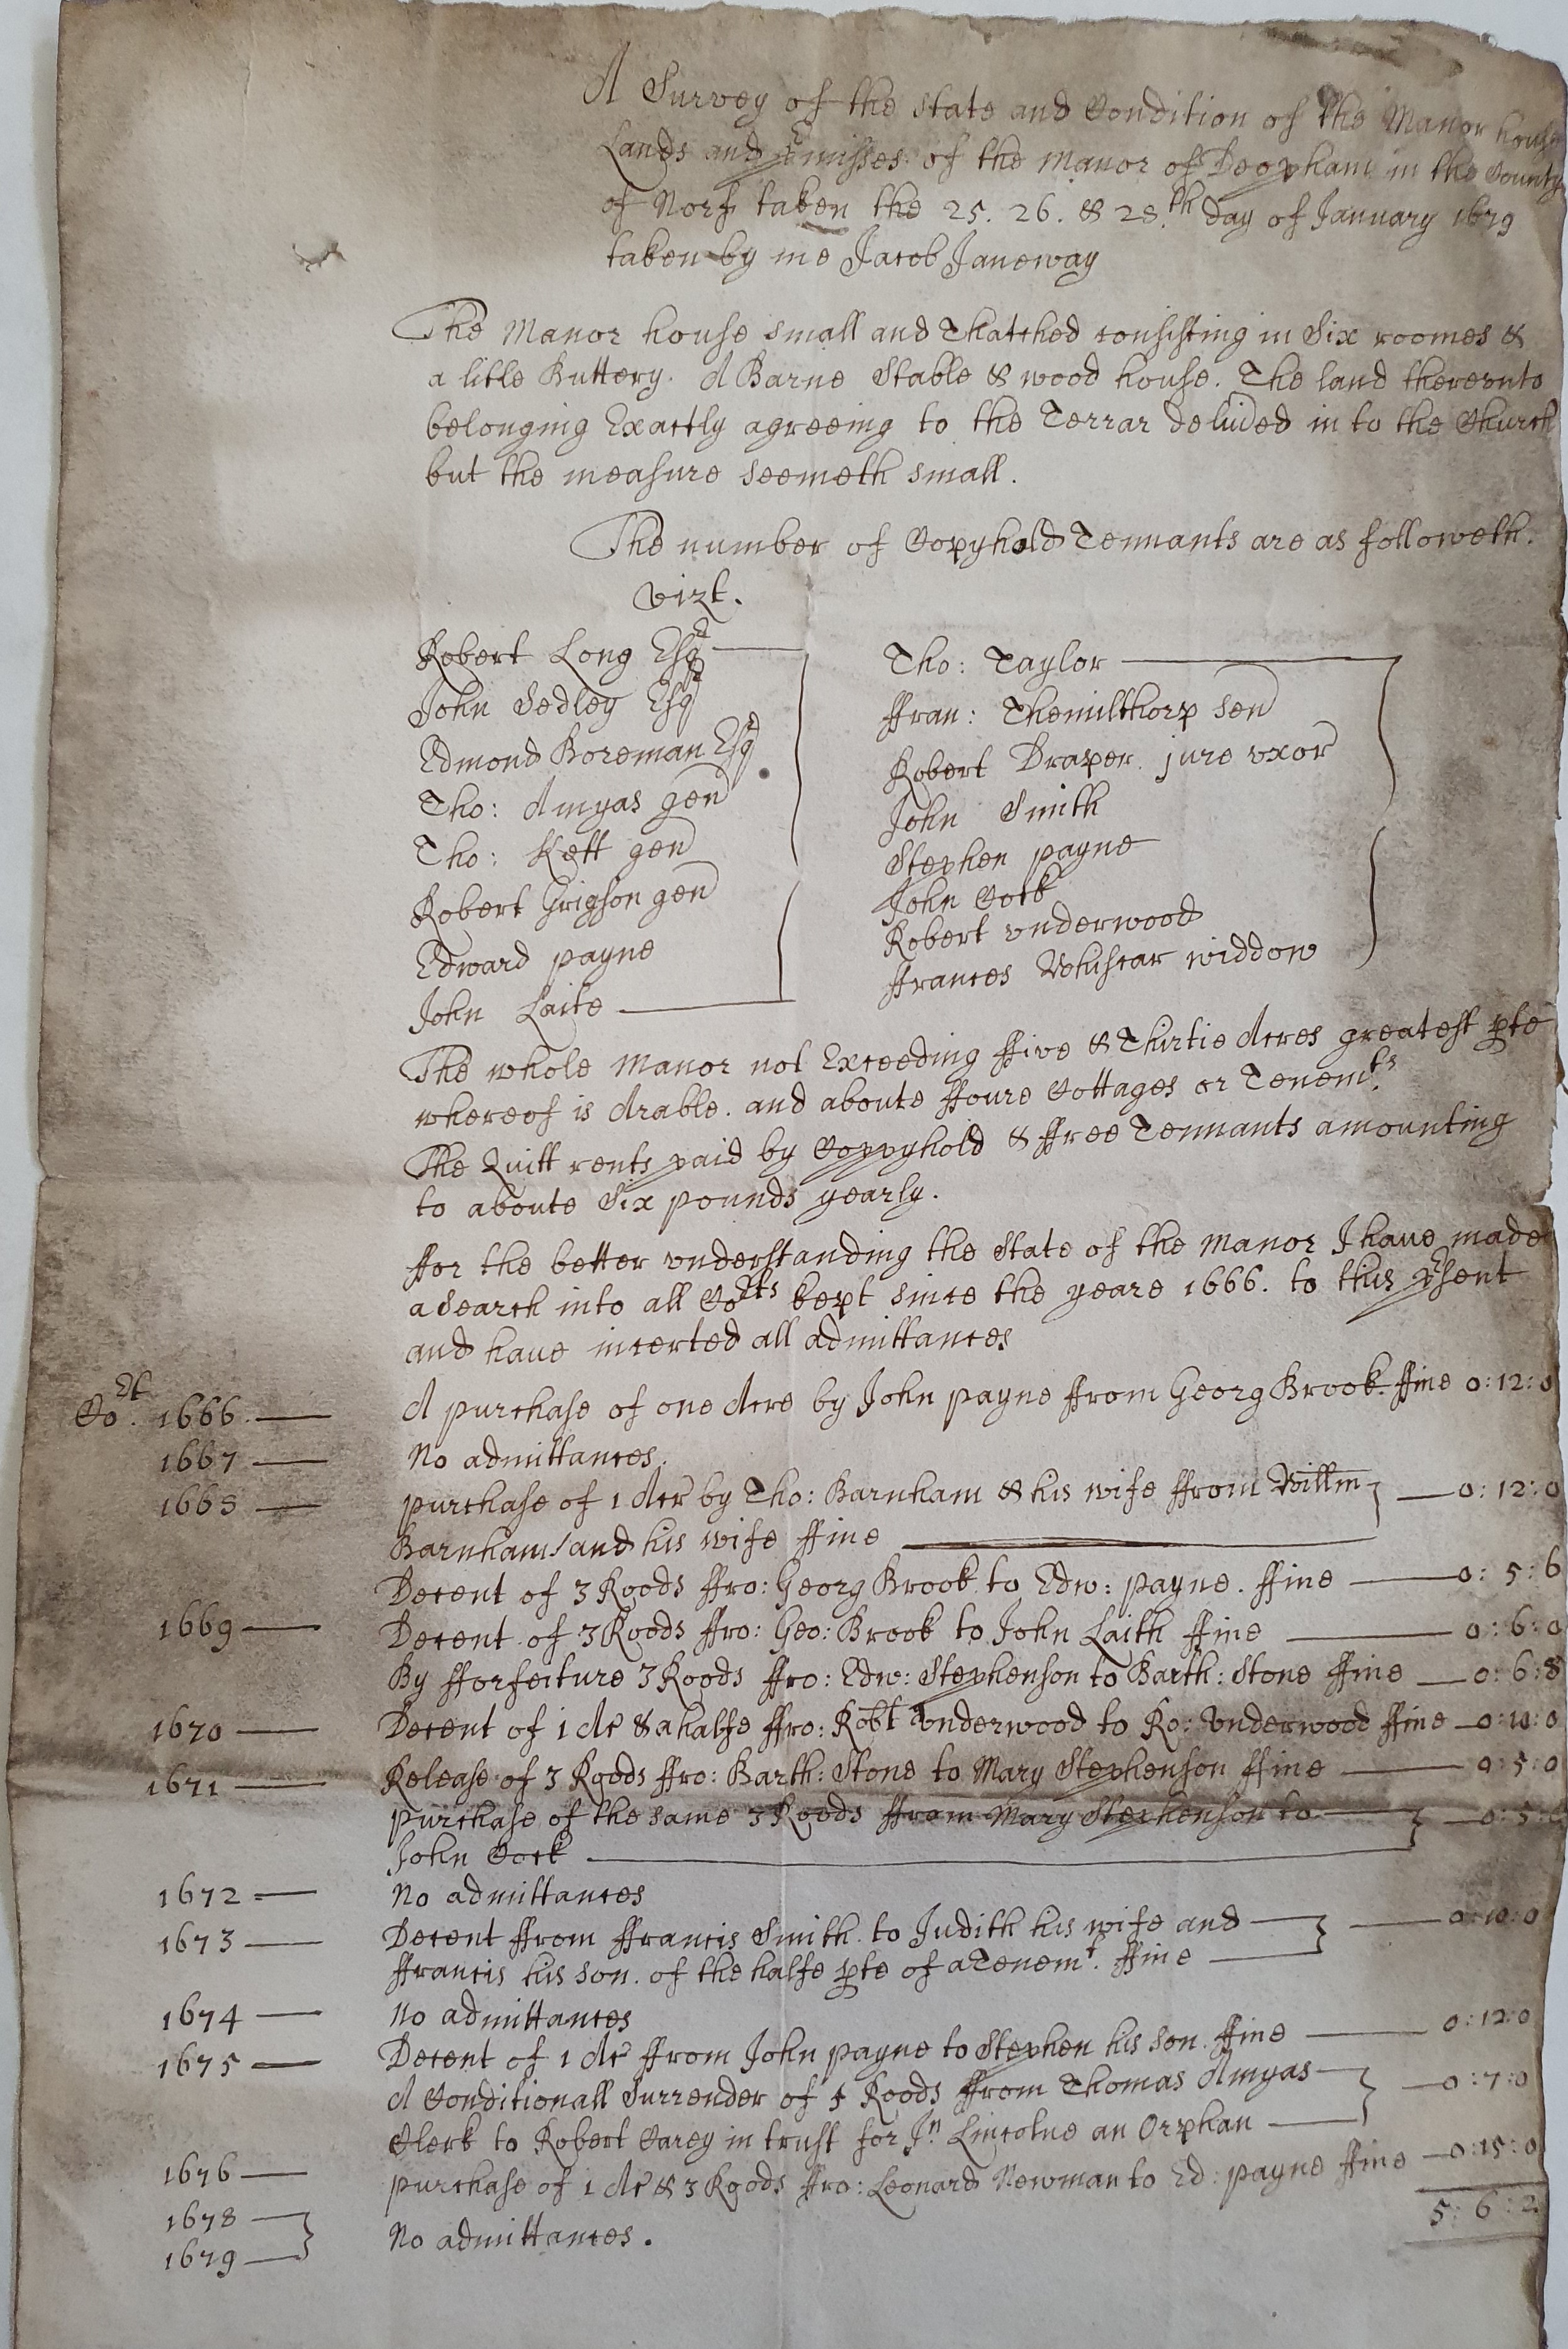 A Survey of the State and Condition of the Manor house
Lands and p'misses of the Manor of Deopham in the County
of Norf taken the 25. 26. & 28.th day of January 1679
taken by me Jacob Janeway
The Manor house small and Thatched consisting in Six roomes &
a litle Buttery. A Barne Stable & wood house. The land therevnto
belonging Exactly agreeing to the Terrar deliu'ed in to the Church
but the measure seemeth small.
The number of Copyhold Tennants are as followeth.
vizt.
Robert Long Esqr
John Sedley Esqr
Edmond Boreman Esqr
Tho: Amyas gen
Tho: Kett gen
Robert Grigson gen
Edward payne
John Laite
Tho: Taylor
ffran: Themilthorp sen
Robert Draper. jure vxor
John Smith
Stephen payne
John Cock
Robert vnderwood
ffrances widdow
The whole Manor not Exceeding ffive & Thirtie Acres greatest pte
whereof is Arable. and aboute ffoure Cottages or Tenemts.
The Quitt rents paid by Coppyhold & ffree Tennants amounting
to aboute Six pounds yearly.
ffor the better vnderstanding the State of the Manor I haue made
a Search into all Corts kept since the yeare 1666. to this p'sent
and haue incerted all admittances
Cort. 1666 — A purchase of one Acre by John payne ffrom Georg Brook. ffine 0:12:0
1667 — No admittances.
1668 — purchase of 1 Acr by Tho: Barnham & his wife ffrom Willm } — 0:12:0
Barnham / and his wife ffine
Decent of 3 Roods ffro: Georg Brook to Edw: payne. ffine — 0:5:6
1669 — Decent of 3 Roods ffro: Geo: Brook to John Laith ffine — 0:6:0
By fforfeiture 3 Roods ffro: Edw: Stephenson to Barth: Stone ffine — 0:6:8
1670 — Decent of 1 Ac & a halfe ffro: Robt Vnderwood to Ro: Vnderwood ffine — 0:10:0
1671 — Release of 3 Roods ffro: Barth: Stone to Mary Stephenson ffine — 0:5:0
purchase of the same 3 Roods ffrom Mary Stephenson to } — 0:5:
John Cock
1672 = No admittances
1673 — Decent ffrom ffrancis Smith to Judith his wife and } — 0:10:0
ffrancis his son. of the halfe pte of a Tenemt. ffine
1674 — No admittances
1675 — Decent of 1 Ac ffrom John payne to Stephen his son. ffine — 0:12:0
A Conditionall Surrender of 5 Roods ffrom Thomas Amyas } — 0:7:0
Clerk to Robert Carey in trust for Jn Lincolne an Orphan
1676 — purchase of 1 Ac & 3 Roods ffro: Leonard Newman to Ed: payne ffine — 0:15:0
5:6:2
1678 — }
1679 — } No admittances.